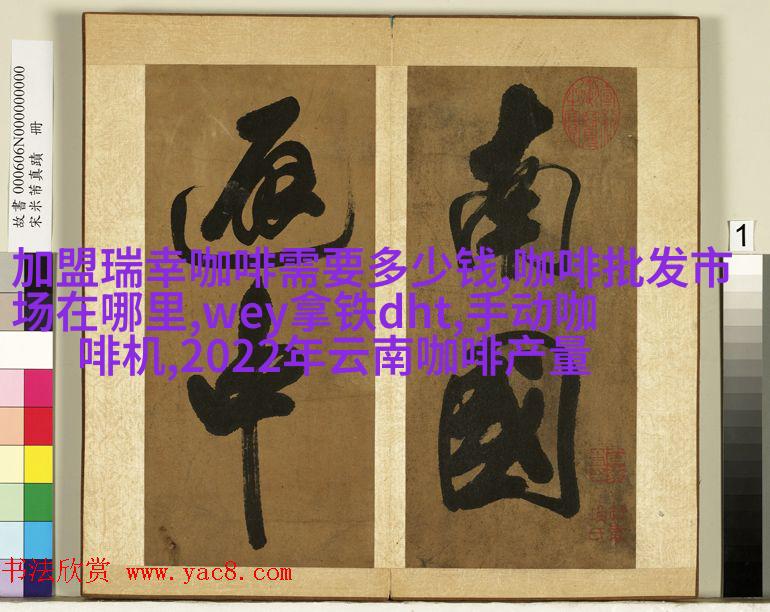 故書 000606N000000000
宋米芾真蹟 冊
南國
中
1
加盟瑞幸咖啡需要多少钱,咖啡批发市
场在哪里,wey拿铁dht,手动咖
啡机,2022年云南咖啡产量
书法欣赏 www.yac8.com